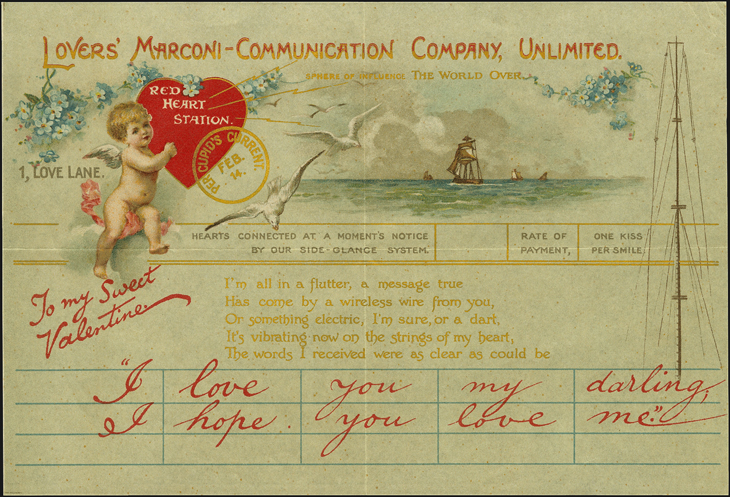 LOVERS' MARCONI-COMMUNICATION COMPANY, UNLIMITED.
SPHERE OF INFLUENCE THE WORLD OVER.
RED
HEART
STATION.
PER CUPID'S CURRENT.
FEB.
14.
1, LOVE LANE.
HEARTS CONNECTED AT A MOMENT'S NOTICE
BY OUR SIDE-GLANCE SYSTEM.
RATE OF
PAYMENT,
ONE KISS
PER SMILE
To my Sweet
Valentine.
I'm all in a flutter, a message true
Has come by a wireless wire from you,
Or something electric, I'm sure, or a dart,
It's vibrating now on the strings of my heart,
The words I received were as clear as could be
"I love you my darling,
I hope. you love me."